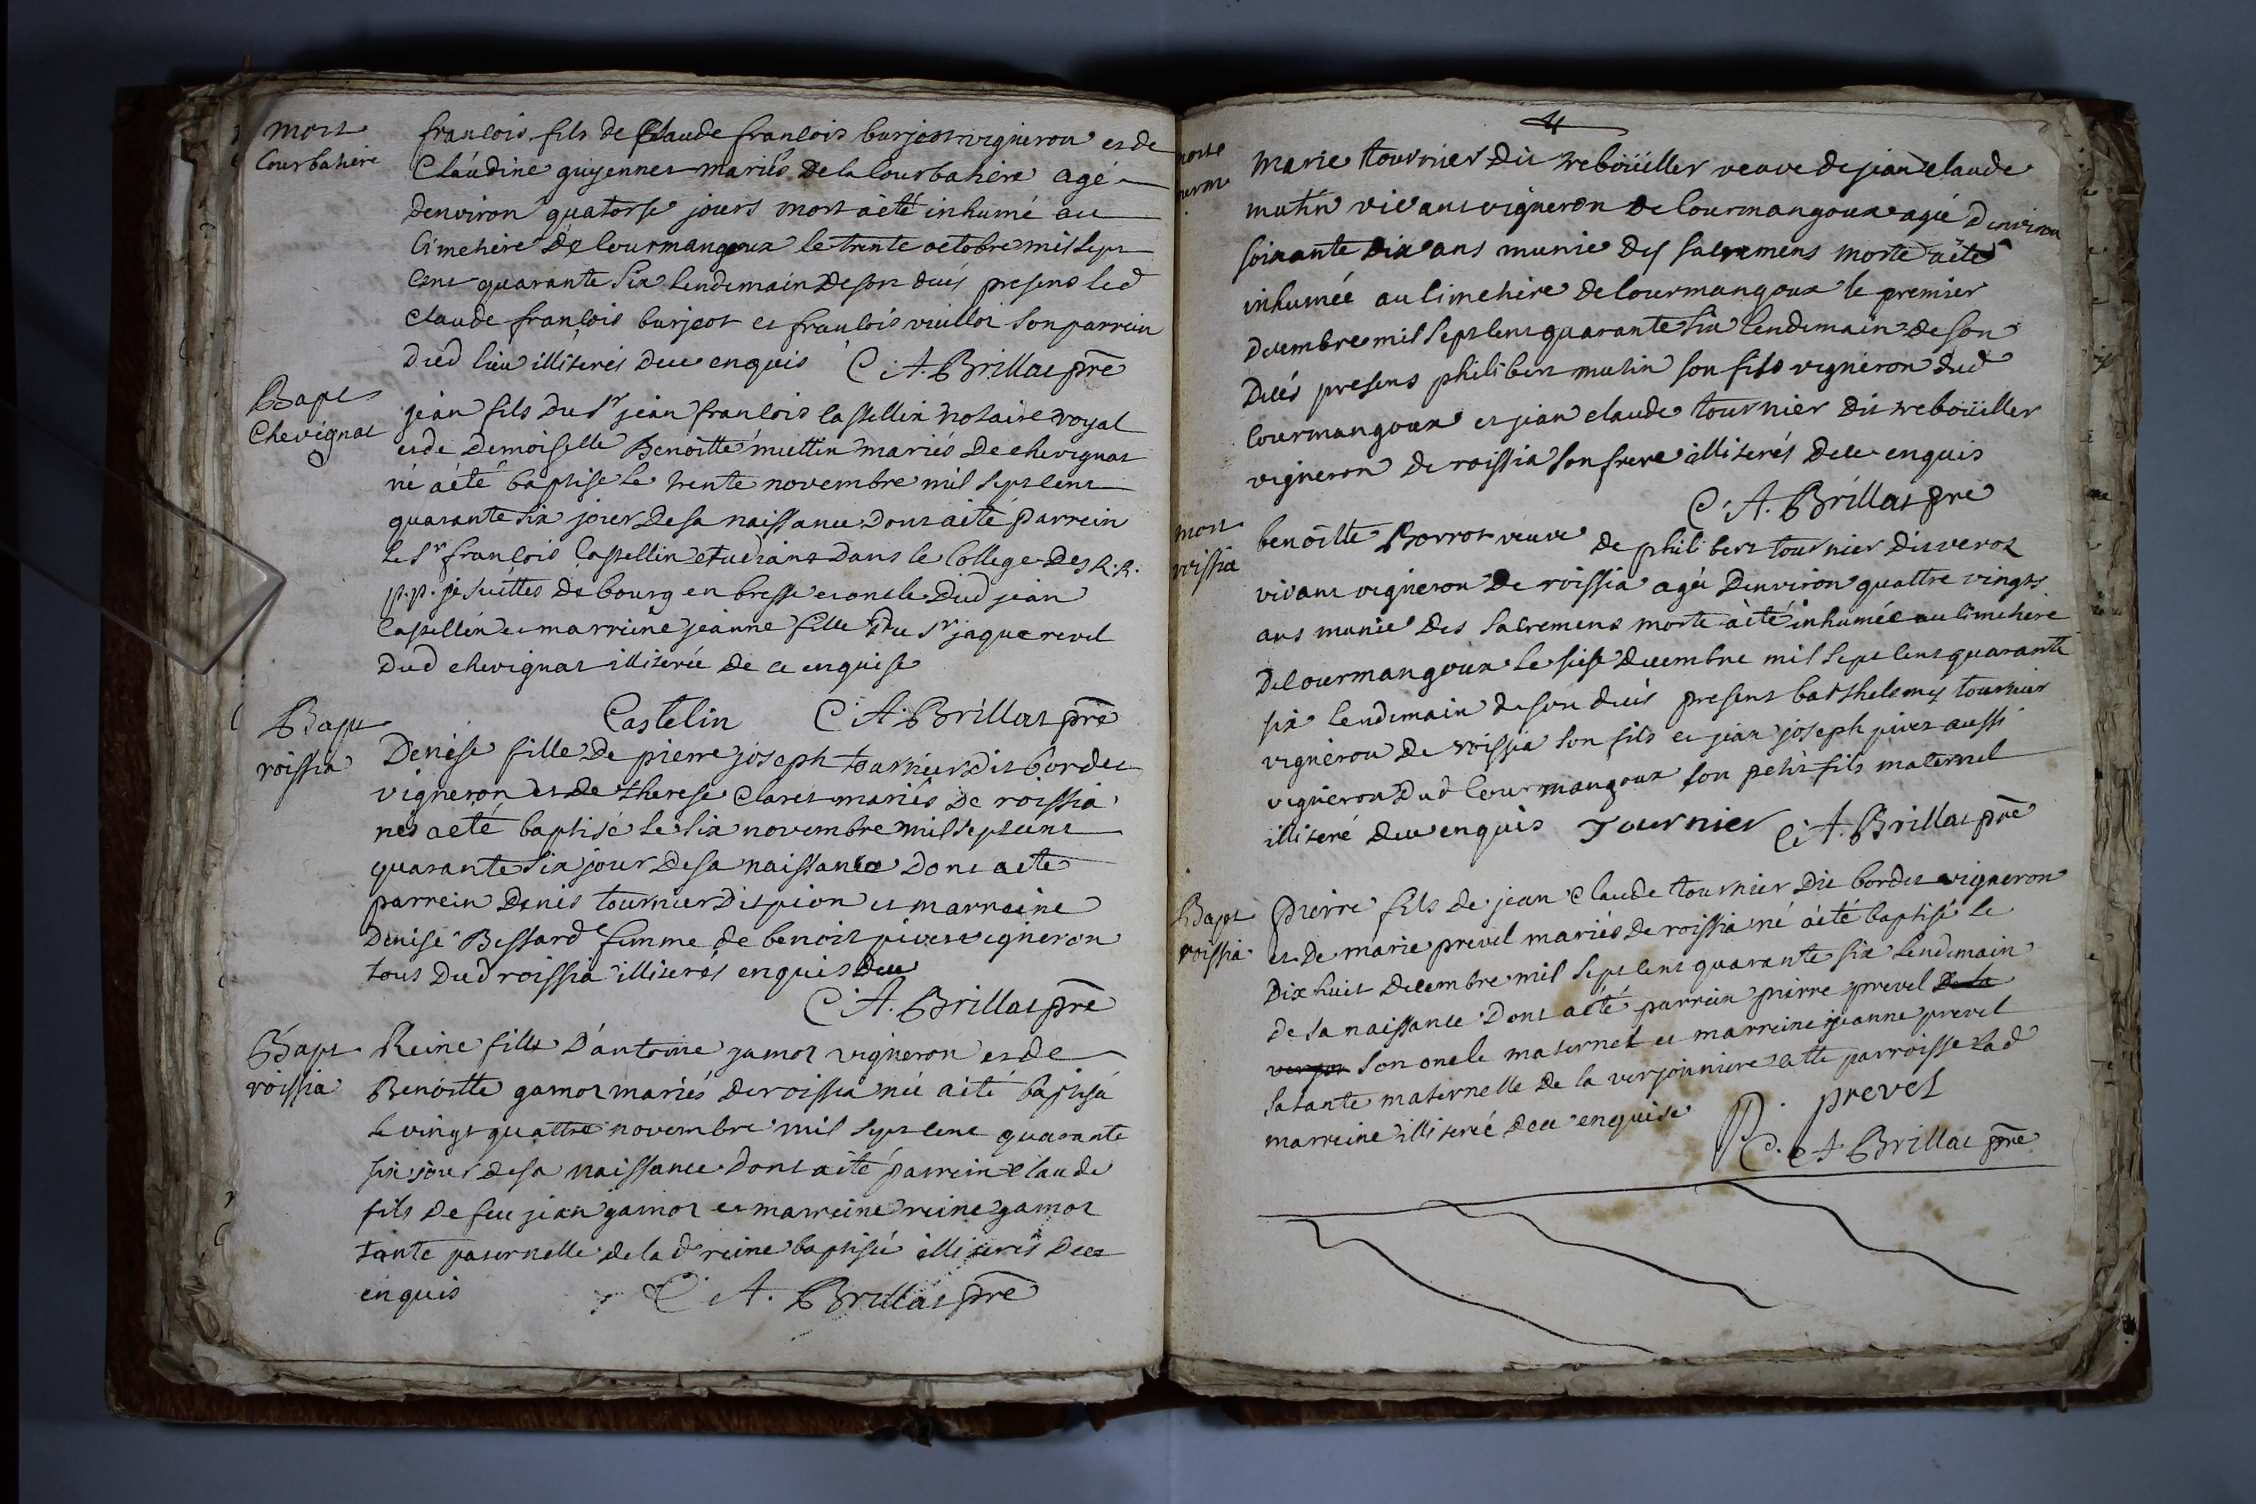 mort
Courbatiere
francois fils de Claude francois burjost vigneron et de
Claudine guyennet mariés de la Courbatiere agé
denviron quatorse jours mort a été inhumé au
Cimetiere de Courmangoux le trente octobre mil sept
cent quarante six lendemain de son decés presens led
Claude françois burjost et francois vuillot son parrein
dud lieu illiterés de ce enquis C. A. Brillat prē
Bapt
Chevignat
jean fils du Sr jean francois Castellin notaire royal
et de demoiselle Benoitte muttin mariés de chevignat
né a été baptise le trente novembre mil sept cent
quarante six jour de sa naissance dont a eté parrein
le Sr francois Castellin etudiant dans le College des R.R.
p.p. jesuittes de bourg en bresse et oncle dud jean
Castellin et marrieine jeanne fille du Sr jaque revel
dud chevignat illiterée de ce enquise
Castelin C. A. Brillat prē
Bapt
roissia
Denise fille de pierre joseph tournier dit bordet
vigneron et de therese Claret mariés de roissia
neé a eté baptisé le six novembre mil sept cent
quarante six jour de sa naissance dont a eté
parrein Denis tournier dit pion et marreine
Denise Bessard femme de benoit pivet vigneron
tous dud roissia illiterés enquis de ce
C. A. Brillat prē
Bapt
roissia
Reine fille d'antoine gamot vigneron et de
Benoitte gamot mariés de roissia née a été baptisée
le vingt quattre novembre mil sept cent quarante
six jour de sa naissance dont a été parrein Claude
fils de feu jean gamot et marreine reine gamot
tante paternelle de la d reine baptisée illiterés de ce
enquis C. A. Brillat prē
4
morte
marie tournier dit rebouiller veuve de jean claude
mutin vivant vigneron de Courmangoux agée denviron
soixante dix ans munie des sacremens morte a été
inhumée au Cimetiere de Courmangoux le premier
decembre mil sept cent quarante six lendemain de son
decés presens philibert mutin son fils vigneron dud
Courmangoux et jean claude tournier dit rebouiller
vigneron de roissia son frere illiterés de ce enquis
C. A. Brillat prē
mort
roissia
benoitte Borrot veuve de philibert tournier dit verot
vivant vigneron de roissia agée denviron quattre vingts
ans munie des sacremens morte a été inhumée au Cimetiere
de Courmangoux le seise decembre mil sept cent quarante
six lendemain de son decés presens barthelemy tournier
vigneron de roissia son fils et jean joseph pivet aussi
vigneron dud Courmangoux son petit fils maternel
illiteré de ce enquis Tournier C. A. Brillat prē
Bapt
roissia
Pierre fils de jean Claude tournier dit bordet vigneron
et de marie prevel mariés de roissia né a été baptisé le
dix huit decembre mil sept cent quarante six lendemain
de sa naissance dont a été parrein pierre prevel de la
son oncle maternel et marreine jeanne prevel
sa tante maternelle de la verjonniere cette parroisse lad
marreine illiterée de ce enquise P. prevel
C. A. Brillat prē